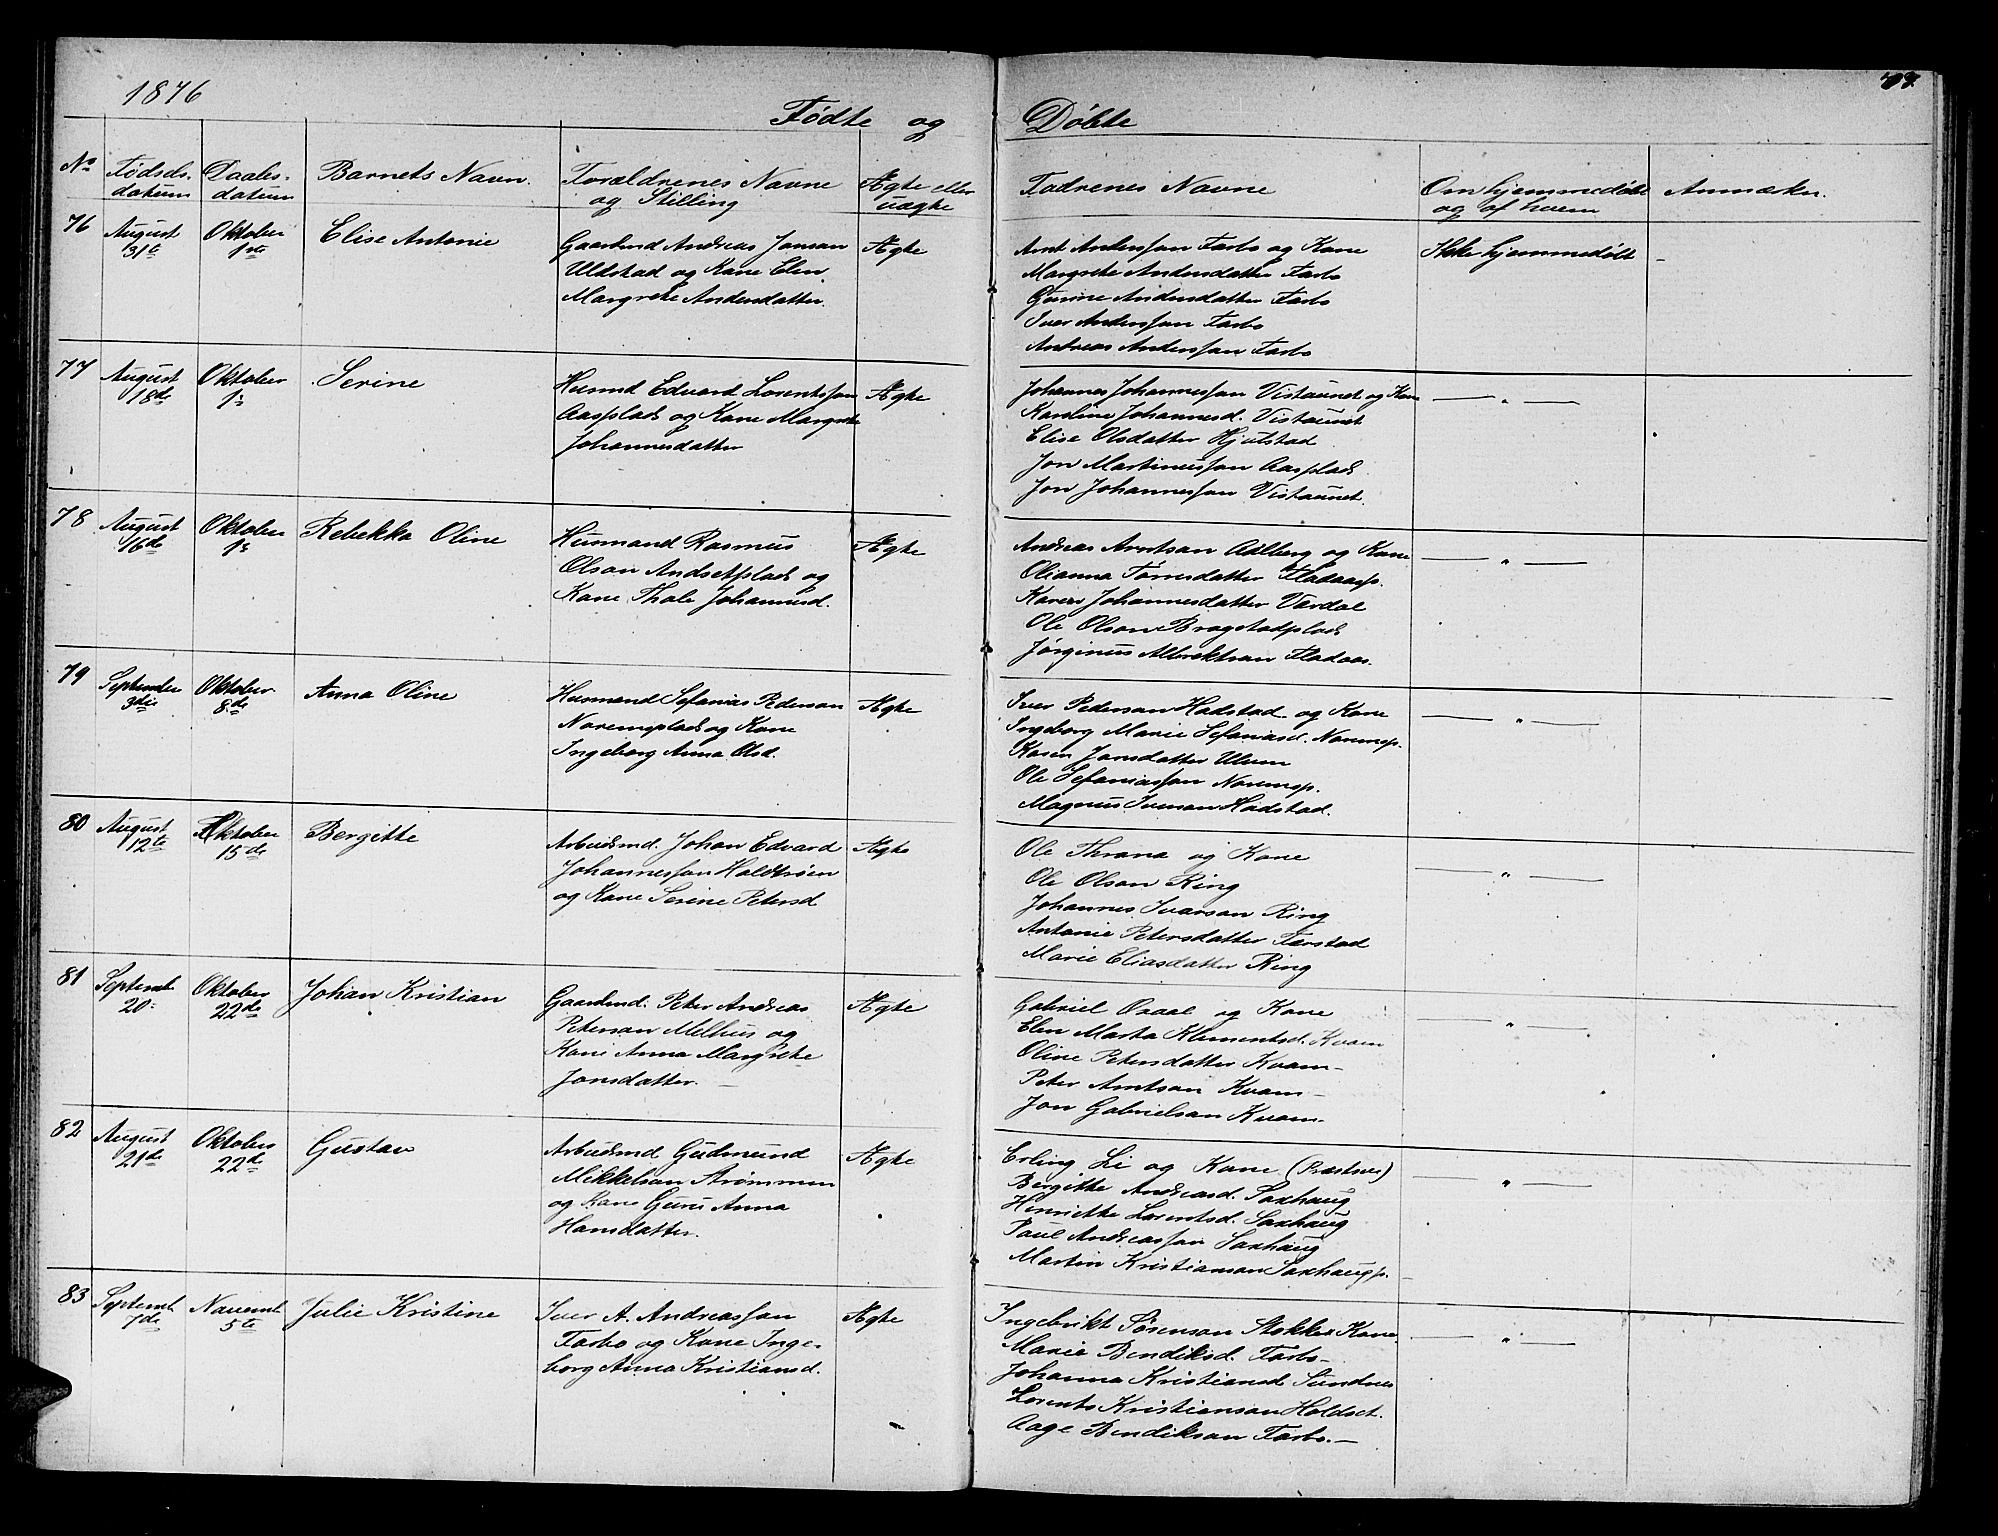 1876
77.
Fødte og Døbte
No
Fødsels-
datum
Daabs-
datum
Barnets Navn.
Forældrenes Navne
og Stilling
Ægte eller
uægte
Fadrenes Navne
Om hjemmedøbt
og af hvem
Anmærkn.
76
August
31te
Oktober
1ste
Elise Antonie
Gaardmd Andreas Jonsan
Uldstad og Kone Elen
Margrete Andersdatter.
Ægte
Arnt Anderssan Farbo og Kone
Margrete Andersdatter Farbo
Andersdatter Farbo
Iver Anderssan Farbo
Andreas Anderssan Farbo
Ikke hjemmedøbt
77
August
18de
Oktober
1ste
Serine
Husmd Edvard Lorentssan
Aasplads og Kone Margrete
Johannesdatter
Ægte
Johannes Johannessan Vistaunet og Kone
Karoline Johannesd. Vistaunet
Elise Olsdatter Hjulstad
Jon Martinussan Aasplads
Jon Johannessan Vistaunet.
— " —
78
August
16de
Oktober
1ste
Rebekka Oline
Husmand Rasmus
Olsan Andsetplads og
Kone Thale Johannesd.
Ægte
Andreas Arntsan Aalberg og Kone
Olianna Tørresdatter Fladaasp.
Karen Johannesdatter Værdal
Ole Olsan Bragstadplads
Jørginus Albrektsan Fladaas.
— " —
79
September
3die
Oktober
8de
Anna Oline
Husmand Sefanias Pedersan
Noremsplads og Kone
Ingeborg Anna Olsd.
Ægte
Iver Pedersan Hadstad og Kone
Ingeborg Marie Sefaniasd. Noremsp.
Karen Jonsdatter Ulven
Ole Sefaniassan Noremsp.
Magnus Iversan Hadstad.
— " —
80
August
12te
Oktober
15de
Bergitte
Arbeidsmd. Johan Edvard
Johannessan Holdtrøen
og Kone Serine Petersd
Ægte
Ole Thrana og Kone
Ole Olsan Ring
Johannes Ivarsan Ring
Antonie Petersdatter Farstad
Marie Eliasdatter Ring
— " —
81
Septemb.
20:
Oktober
22de
Johan Kristian
Gaardmd. Peter Andreas
Petersan Melhus og
Kone Anna Margrete
Jonsdatter. —
Ægte
Gabriel Oxaal og Kone
Elen Marta Klementsd. Kvam
Oline Petersdatter Kvam —
Peter Arntsan Kvam —
Jon Gabrielsan Kvam —
— " —
82
August
21de
Oktober
22de
Gustav
Arbeidsmd Gudmund
Mikkelsan Strømmen
og Kone Guru Anna
Hansdatter.
Ægte
Erling Li og Kone (Præstnes)
Bergitte Andreasd. Saxhaug
Henriette Lorentsd. Saxhaug
Paul Andreassan Saxhaug
Martin Kristiansan Saxhaugp. —
— " —
83
Septemb.
7de
Novemb.
5te
Julie Kristine
Iver A. Andreassan
Farbo og Kone Inge-
borg Anna Kristiansd.
Ægte
Ingebrikt Sørensan Stokke & Kone
Marie Bendiksd. Farbo —
Johanna Kristiansd Sundnes
Lorents Kristiansan Holdset.
Aage Bendiksan Farbo. —
— " —